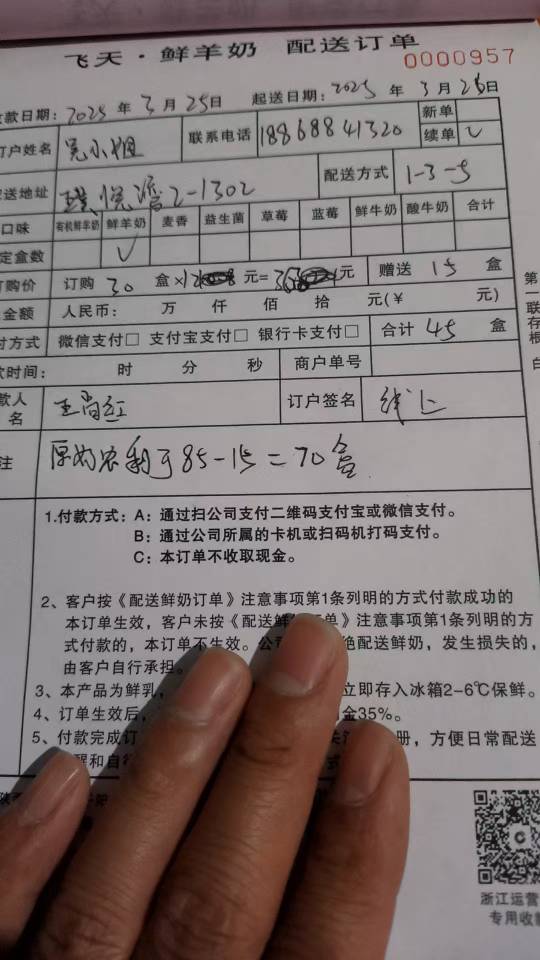 飞天·鲜羊奶 配送订单
0000957
款日期: 2025 年 3 月 25日 起送日期: 2025 年 3 月 26日
订户姓名 吴小姐 联系电话 18868841320 新单
续单 √
送地址 2-1302 配送方式 1-3-5
口味 有机鲜羊奶 鲜羊奶 麦香 益生菌 草莓 蓝莓 鲜牛奶 酸牛奶 合计
定盒数 √
订购价 订购 30 盒× 元= 元 赠送 15 盒
金额 人民币: 万 仟 佰 拾 元(¥ 元)
付方式 微信支付□ 支付宝支付□ 银行卡支付□ 合计 45 盒
款时间: 时 分 秒 商户单号
款人
名 王尚红 订户签名 线上
注 85-15=70盒
第一联存根 白
1.付款方式: A: 通过扫公司支付二维码支付宝或微信支付。
B: 通过公司所属的卡机或扫码机打码支付。
C: 本订单不收取现金。
2、客户按《配送鲜奶订单》注意事项第1条列明的方式付款成功的
本订单生效, 客户未按《配送鲜 单》注意事项第1条列明的方
式付款的, 本订单不生效。公 绝配送鲜奶, 发生损失的,
由客户自行承担。
3、本产品为鲜乳, 立即存入冰箱2-6℃保鲜。
4、订单生效后, 金35%。
5、付款完成订 册, 方便日常配送
醒和自行
浙江运营
专用收款